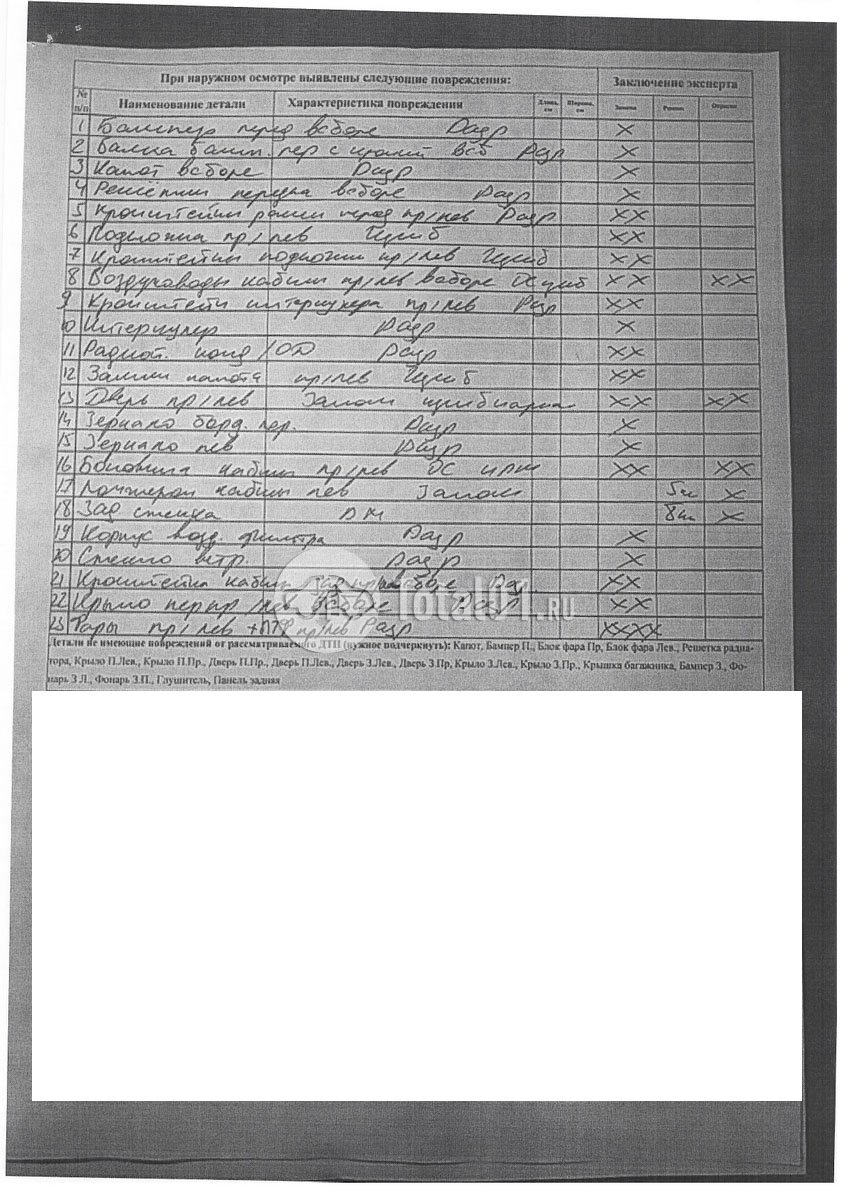 При наружном осмотре выявлены следующие повреждения: Заключение эксперта
№ п/п Наименование детали Характеристика повреждения Длина, см Ширина, см Замена Ремонт Окраска
1 Бампер перед в сборе Разр X
2 Балка бамп. пер с Разр X
3 Капот в сборе Разр X
4 Решётки передка в сборе Разр X
5 Кронштейны рамы перед пр/лев Разр XX
6 Подножка пр/лев Изгиб XX
7 Кронштейны подножки пр/лев Изгиб XX
8 Воздуховоды кабины пр/лев в сборе XX XX
9 Кронштейн интеркулера пр/лев Разр XX
10 Интеркулер Разр X
11 Радиат. конд/ОД Разр XX
12 Замки капота пр/лев Изгиб XX
13 Дверь пр/лев Залом XX XX
14 Зеркало борд. пер. Разр X
15 Зеркало лев Разр X
16 Боковина кабины пр/лев XX XX
17 Лонжерон кабины лев Залом 5 X
18 Зад стенка 8 X
19 Корпус возд. фильтра Разр X
20 Стекло ветр. Разр X
21 Кронштейн кабины XX
22 Крыло пер пр/лев в сборе Разр XX
23 Фары пр/лев + ПТФ пр/лев Разр XXXX
Total01.RU
Детали не имеющие повреждений от рассматриваемого ДТП (нужное подчеркнуть): Капот, Бампер П., Блок фара Пр, Блок фара Лев., Решетка радиа-
тора, Крыло П.Лев., Крыло П.Пр., Дверь П.Пр., Дверь П.Лев., Дверь З.Лев., Дверь З.Пр, Крыло З.Лев., Крыло З.Пр., Крышка багажника, Бампер З., Фо-
нарь З.Л., Фонарь З.П., Глушитель, Панель задняя